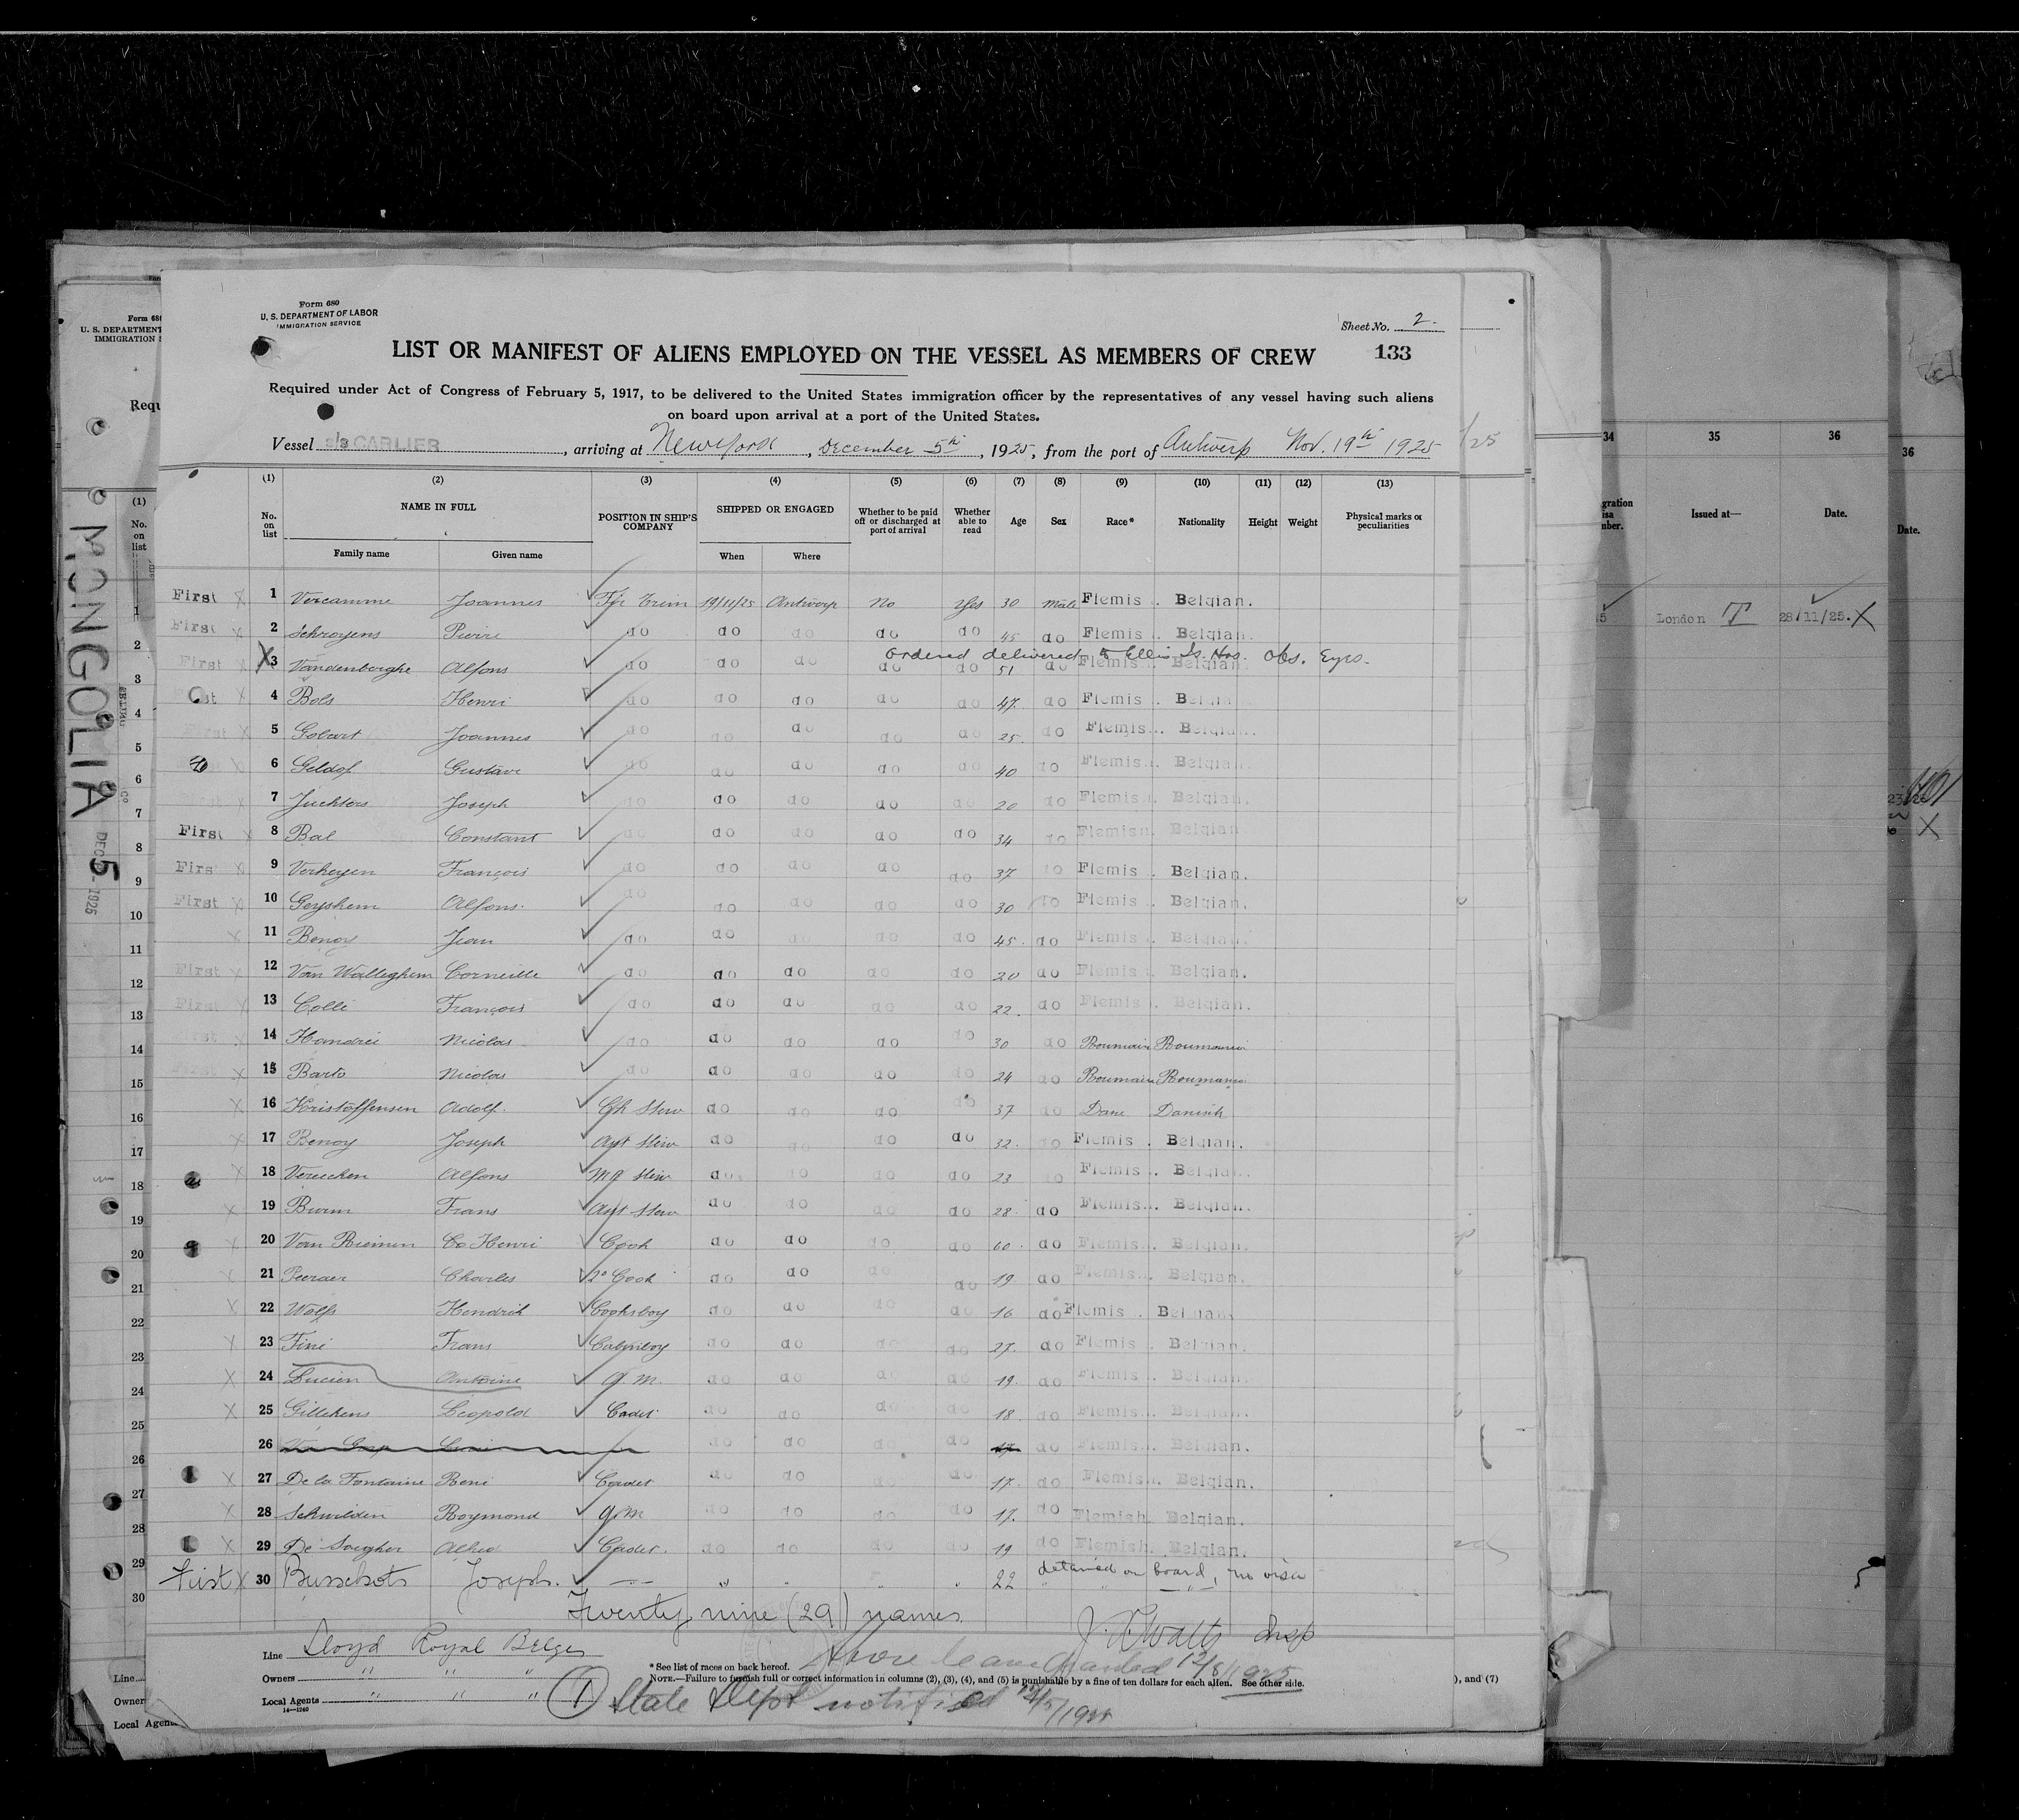 Form 680
U. S. DEPARTMENT OF LABOR
IMMIGRATION SERVICE
Sheet No. 2.
LIST OR MANIFEST OF ALIENS EMPLOYED ON THE VESSEL AS MEMBERS OF CREW 133
Required under Act of Congress of February 5, 1917, to be delivered to the United States immigration officer by the representatives of any vessel having such aliens
on board upon arrival at a port of the United States.
Vessel s/s CARLIER, arriving at New York, December 5th, 1925, from the port of Antwerp Nov. 19th 1925
(1) (2) (3) (4) (5) (6) (7) (8) (9) (10) (11) (12) (13)
No. on list NAME IN FULL Family name Given name POSITION IN SHIP'S COMPANY SHIPPED OR ENGAGED When Where Whether to be paid off or discharged at port of arrival Whether able to read Age Sex Race* Nationality Height Weight Physical marks or peculiarities
First x 1 Vercamme Joannes 19/11/25 Antwerp No Yes 30 Male Flemis . Belgian.
First x 2 Schroyens Pierre do do do do do 45 do Flemis . Belgian.
ordered delivered to Ellis Is. Hos. Obs. Eyes.
First x 3 Vandenberghe Alfons do do do do do 51 do Flemis Belgian
x 4 Bols Henri do do do do do 47 do Flemis Belgian
First x 5 Gobart Joannes do do do do do 25 do Flemis . Belgian.
x 6 Geldof Gustave do do do do do 40 do Flemis . Belgian.
x 7 Joseph do do do do do 20 do Flemish. Belgian.
First x 8 Bal Constant do do do do do 34 do Flemish. Belgian
First x 9 Verheyen François do do do do do 37 do Flemis . Belgian.
First x 10 Geyshem Alfons. do do do do do 30 do Flemis . Belgian.
x 11 Benoy Jean do do do do do 45 do Flemis . Belgian.
First x 12 Van Walleghem Corneille do do do do do 20 do Flemis . Belgian.
First x 13 Colli François do do do do do 22 do Flemis . Belgian.
First x 14 Handrei Nicolas do do do do do 30 do Roumain Roumania
First x 15 Barto Nicolas do do do do do 24 do Roumain Roumania
x 16 Kristoffensen Adolf. Ch Stew do do do do 37 do Dane Danish
x 17 Benoy Joseph Ast Stew do do do do 32 do Flemis . Belgian.
x 18 Alfons Stew do do do do 23 do Flemis . Belgian.
x 19 Burm Frans Ast Stew do do do do 28 do Flemis . Belgian.
x 20 Van Co Henri Cook do do do do 60 do Flemis . Belgian.
x 21 Peeraer Charles 2° Cook do do do do 19 do Flemish. Belgian.
x 22 Hendrik Cooksboy do do do do 16 do Flemis . Belgian.
x 23 Fini Frans Cabinboy do do do do 27 do Flemis . Belgian.
x 24 Lucien Antoine do do do do 19 do Flemis . Belgian.
x 25 Gillekens Leopold Cadet do do do do 18 do Flemis . Belgian.
26 do do do do 17 do Flemish. Belgian.
x 27 De la Fontaine René Cadet do do do do 17 do Flemish. Belgian.
x 28 Schwilden Raymond do do do do 17 do Flemish. Belgian.
x 29 Cadet. do do do do 19 do Flemish. Belgian.
First x 30 Busschots Joseph. 22 detained on board, no visa
Twenty nine (29) names
J. R. Watts Insp
Line Lloyd Royal Belge
Owners " " "
Local Agents " " "
14—1240
*See list of races on back hereof.
Shore leave granted 12/8/1925
NOTE.—Failure to furnish full or correct information in columns (2), (3), (4), and (5) is punishable by a fine of ten dollars for each alien. See other side.
1 State Dept notified
Form 680
U. S. DEPARTMENT
IMMIGRATION
Requ
(1)
No. on list
MONGOLIA
DEC 5 1925
1
2
3
4
5
6
7
8
9
10
11
12
13
14
15
16
17
18
19
20
21
22
23
24
25
26
27
28
29
30
Line
Owner
Local Agent
), and (7)
34 35 36
Issued at— Date.
London 28/11/25. X
36
Date.